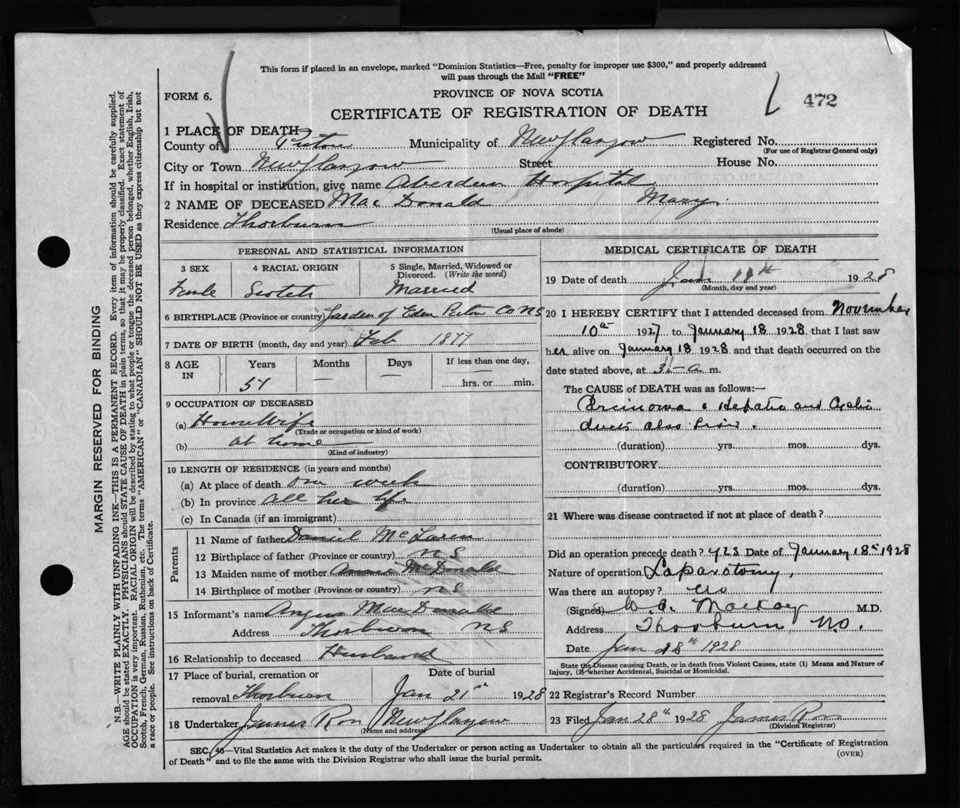 This form if placed in an envelope, marked "Dominion Statistics—Free, penalty for improper use $300," and properly addressed
will pass through the Mail "FREE"
FORM 6.
PROVINCE OF NOVA SCOTIA
CERTIFICATE OF REGISTRATION OF DEATH
472
1 PLACE OF DEATH
County of Pictou Municipality of New Glasgow Registered No.
(For use of Registrar General only)
City or Town New Glasgow Street House No.
If in hospital or institution, give name Aberdeen Hospital
2 NAME OF DECEASED Mac Donald Mary
Residence Thorburn
(Usual place of abode)
PERSONAL AND STATISTICAL INFORMATION
3 SEX 4 RACIAL ORIGIN 5 Single, Married, Widowed or Divorced. (Write the word)
Femle Scotch Married
6 BIRTHPLACE (Province or country) Garden of Eden Pictou Co NS
7 DATE OF BIRTH (month, day and year) Feb 1877
8 AGE IN Years Months Days If less than one day,
51 — — hrs. or min.
9 OCCUPATION OF DECEASED
(a) House Wife
(Trade or occupation or kind of work)
(b) at home
(Kind of industry)
10 LENGTH OF RESIDENCE (in years and months)
(a) At place of death one week
(b) In province all her life
(c) In Canada (if an immigrant)
Parents
11 Name of father Daniel McLaren
12 Birthplace of father (Province or country) NS
13 Maiden name of mother Annie McDonald
14 Birthplace of mother (Province or country) NS
15 Informant's name Angus MacDonald
Address Thorburn NS
16 Relationship to deceased Husband
17 Place of burial, cremation or removal Thorburn Date of burial Jan 21st 1928
18 Undertaker James Ross New Glasgow
(Name and address)
MEDICAL CERTIFICATE OF DEATH
19 Date of death Jan 1928
(Month, day and year)
20 I HEREBY CERTIFY that I attended deceased from November
10th 1927 to January 18 1928, that I last saw
her alive on January 18 1928. and that death occurred on
date stated above, at a m.
The CAUSE OF DEATH was as follows:
Hepatic and
ducts also
(duration) yrs. mos. dys.
CONTRIBUTORY
(duration) yrs. mos. dys.
21 Where was disease contracted if not at place of death?
Did an operation precede death? yes Date of January 18th 1928
Nature of operation Laparotomy,
Was there an autopsy? No
(Signed) MacKay M.D.
Address Thorburn, N.S.
Date Jan 28th 1928
State the Disease causing Death, or in death from Violent Causes, state (1) Means and Nature of
Injury, (2) whether Accidental, Suicidal or Homicidal.
22 Registrar's Record Number
23 Filed Jan 28th 1928 James Ross
(Division Registrar)
SEC. 46—Vital Statistics Act makes it the duty of the Undertaker or person acting as Undertaker to obtain all the particulars required in the "Certificate of Registration
of Death" and to file the same with the Division Registrar who shall issue the burial permit.
(OVER)
MARGIN RESERVED FOR BINDING
N.B.—WRITE PLAINLY WITH UNFADING INK—THIS IS A PERMANENT RECORD. Every item of information should be carefully supplied.
AGE should be stated EXACTLY. PHYSICIANS should STATE CAUSE OF DEATH in plain terms, so that it may be properly classified. Exact statement of
OCCUPATION is very important. RACIAL ORIGIN will be described by stating to what people or tongue the deceased person belonged, whether English, Irish,
Scotch, French, German, Russian, Ruthenian, etc. The terms "AMERICAN" or "CANADIAN" SHOULD NOT BE USED as they express citizenship but not
a race or people. See instructions on back of Certificate.